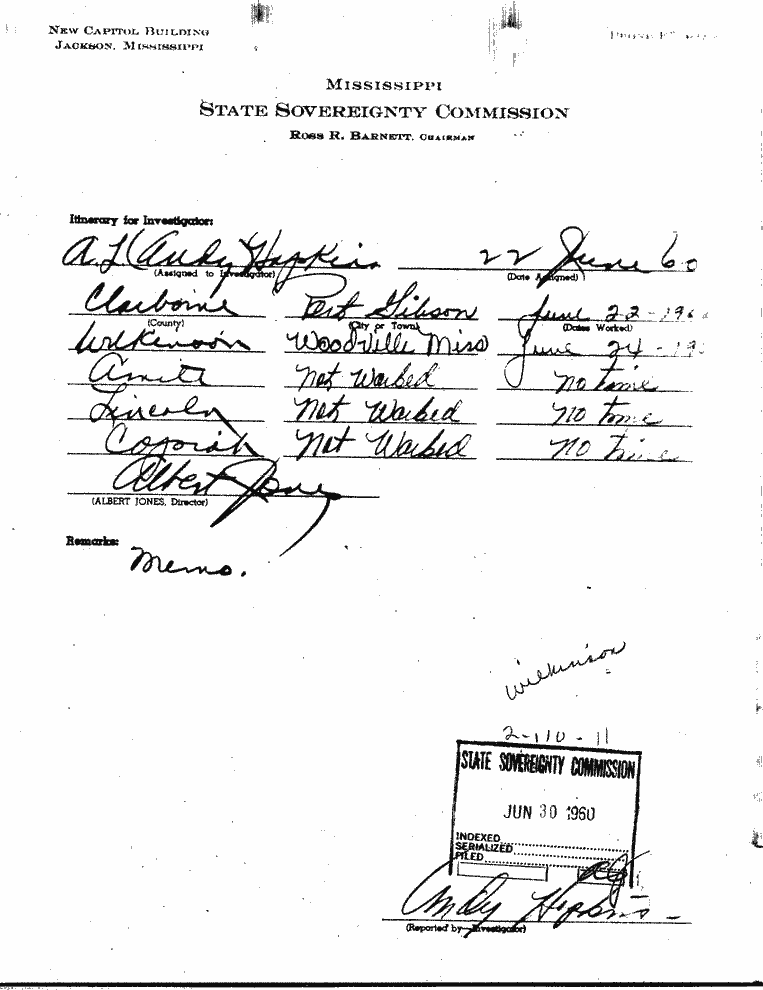 NEW CAPITOL BUILDING
JACKSON, MISSISSIPPI
MISSISSIPPI
STATE SOVEREIGNTY COMMISSION
ROSS R. BARNETT, CHAIRMAN
Itinerary for Investigator:
A.L (Andy Hopkins 22 June 60
(Assigned to Investigator) (Date Assigned)
Claiborne Port Gibson June 22-196
(County) (City or Town) (Dates Worked)
Wilkinson Woodville Miss June 24-19
Amite Not Worked No time
Lincoln Not Worked No time
Copiah Not Worked No time
Albert Jones
(ALBERT JONES, Director)
Remarks:
Memo.
Wilkinson
2-110-11
STATE SOVEREIGNTY COMMISSION
JUN 30 1960
INDEXED
SERIALIZED
FILED
Andy Hopkins
(Reported by Investigator)